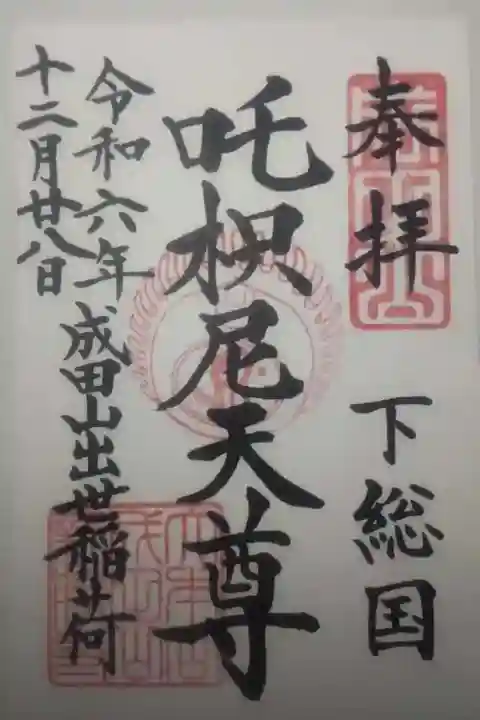 奉拝
下総国
吒枳尼天尊
令和六年
十二月廿八日
成田山出世稲荷